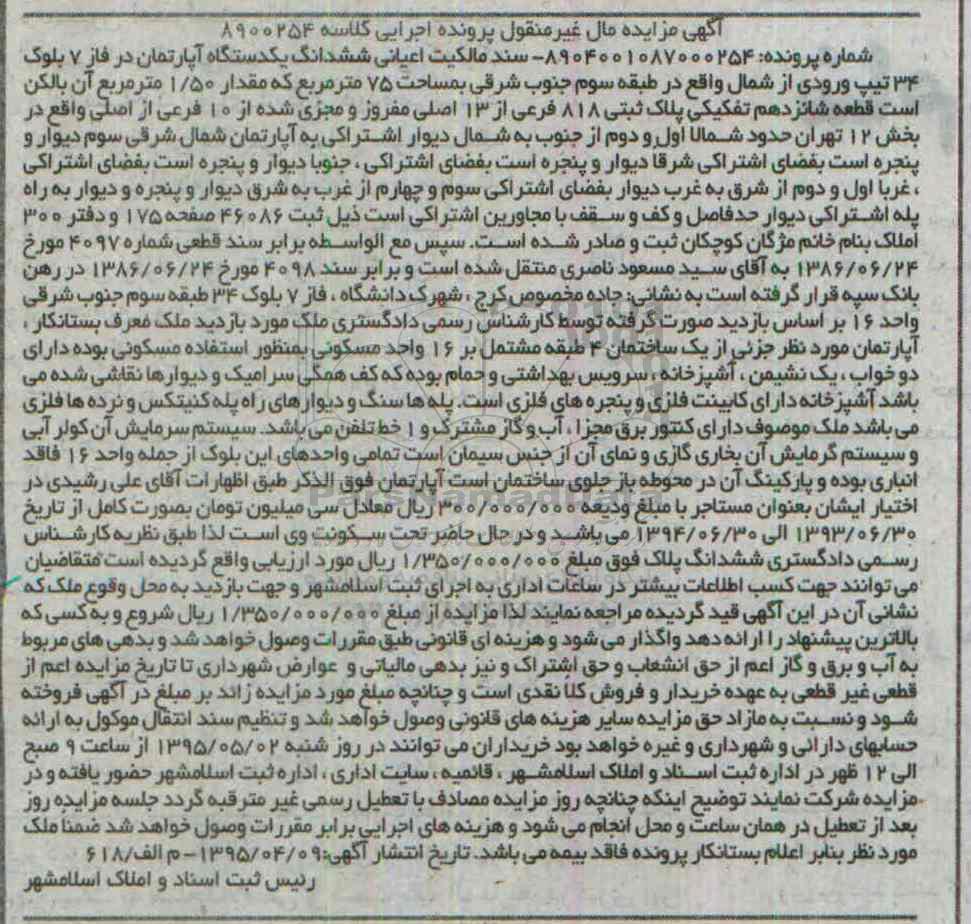 آگهی مزایده مال غیرمنقول پرونده اجرایی کلاسه ۸۹۰۰۲۵۴
شماره پرونده: ۸۹۰۴۰۰۱۰۸۷۰۰۰۲۵۴- سند مالکیت اعیانی ششدانگ یکدستگاه آپارتمان در فاز ۷ بلوک
۳۴ تیپ ورودی از شمال واقع در طبقه سوم جنوب شرقی بمساحت ۷۵ مترمربع که مقدار ۱/۵۰ مترمربع آن بالکن
است قطعه شانزدهم تفکیکی پلاک ثبتی ۸۱۸ فرعی از ۱۳ اصلی مفروز و مجزی شده از ۱۰ فرعی از اصلی واقع در
بخش ۱۲ تهران حدود شمالا اول و دوم از جنوب به شمال دیوار اشتراکی به آپارتمان شمال شرقی سوم دیوار و
پنجره است بفضای اشتراکی شرقا دیوار و پنجره است بفضای اشتراکی ، جنوبا دیوار و پنجره است بفضای اشتراکی
، غربا اول و دوم از شرق به غرب دیوار بفضای اشتراکی سوم و چهارم از غرب به شرق دیوار و پنجره و دیوار به راه
پله اشتراکی دیوار حدفاصل و کف و سقف با مجاورین اشتراکی است ذیل ثبت ۴۶۰۸۶ صفحه ۱۷۵ و دفتر ۳۰۰
املاک بنام خانم مژگان کوچکان ثبت و صادر شده است. سپس مع الواسطه برابر سند قطعی شماره ۴۰۹۷ مورخ
۱۳۸۶/۰۶/۲۴ به آقای سید مسعود ناصری منتقل شده است و برابر سند ۴۰۹۸ مورخ ۱۳۸۶/۰۶/۲۴ در رهن
بانک سپه قرار گرفته است به نشانی: جاده مخصوص کرج ، شهرک دانشگاه ، فاز ۷ بلوک ۳۴ طبقه سوم جنوب شرقی
واحد ۱۶ بر اساس بازدید صورت گرفته توسط کارشناس رسمی دادگستری ملک مورد بازدید ملک معرف بستانکار ،
آپارتمان مورد نظر جزئی از یک ساختمان ۴ طبقه مشتمل بر ۱۶ واحد مسکونی بمنظور استفاده مسکونی بوده دارای
دو خواب ، یک نشیمن ، آشپزخانه ، سرویس بهداشتی و حمام بوده که کف همگی سرامیک و دیوارها نقاشی شده می
باشد آشپزخانه دارای کابینت فلزی و پنجره های فلزی است. پله ها سنگ و دیوارهای راه پله کنیتکس و نرده ها فلزی
می باشد ملک موصوف دارای کنتور برق مجزا ، آب و گاز مشترک و ۱ خط تلفن می باشد. سیستم سرمایش آن کولر آبی
و سیستم گرمایش آن بخاری گازی و نمای آن از جنس سیمان است تمامی واحدهای این بلوک از جمله واحد ۱۶ فاقد
انباری بوده و پارکینگ آن در محوطه باز جلوی ساختمان است آپارتمان فوق الذکر طبق اظهارات آقای علی رشیدی در
اختیار ایشان بعنوان مستاجر با مبلغ ودیعه ۳۰۰/۰۰۰/۰۰۰ ریال معادل سی میلیون تومان بصورت کامل از تاریخ
۱۳۹۳/۰۶/۳۰ الی ۱۳۹۴/۰۶/۳۰ می باشد و در حال حاضر تحت سکونت وی است لذا طبق نظریه کارشناس
رسمی دادگستری ششدانگ پلاک فوق مبلغ ۱/۳۵۰/۰۰۰/۰۰۰ ریال مورد ارزیابی واقع گردیده است متقاضیان
می توانند جهت کسب اطلاعات بیشتر در ساعات اداری به اجرای ثبت اسلامشهر و جهت بازدید به محل وقوع ملک که
نشانی آن در این آگهی قید گردیده مراجعه نمایند لذا مزایده از مبلغ ۱/۳۵۰/۰۰۰/۰۰۰ ریال شروع و به کسی که
بالاترین پیشنهاد را ارائه دهد واگذار می شود و هزینه ای قانونی طبق مقررات وصول خواهد شد و بدهی های مربوط
به آب و برق و گاز اعم از حق انشعاب و حق اشتراک و نیز بدهی مالیاتی و عوارض شهرداری تا تاریخ مزایده اعم از
قطعی غیر قطعی به عهده خریدار و فروش کلا نقدی است و چنانچه مبلغ مورد مزایده زائد بر مبلغ در آگهی فروخته
شود و نسبت به مازاد حق مزایده سایر هزینه های قانونی وصول خواهد شد و تنظیم سند انتقال موکول به ارائه
حسابهای دارائی و شهرداری و غیره خواهد بود خریداران می توانند در روز شنبه ۱۳۹۵/۰۵/۰۲ از ساعت ۹ صبح
الی ۱۲ ظهر در اداره ثبت اسناد و املاک اسلامشهر ، قائمیه ، سایت اداری ، اداره ثبت اسلامشهر حضور یافته و در
مزایده شرکت نمایند توضیح اینکه چنانچه روز مزایده مصادف با تعطیل رسمی غیر مترقبه گردد جلسه مزایده روز
بعد از تعطیل در همان ساعت و محل انجام می شود و هزینه های اجرایی برابر مقررات وصول خواهد شد ضمنا ملک
مورد نظر بنابر اعلام بستانکار پرونده فاقد بیمه می باشد. تاریخ انتشار آگهی: ۱۳۹۵/۰۴/۰۹- م الف/۶۱۸
رئیس ثبت اسناد و املاک اسلامشهر